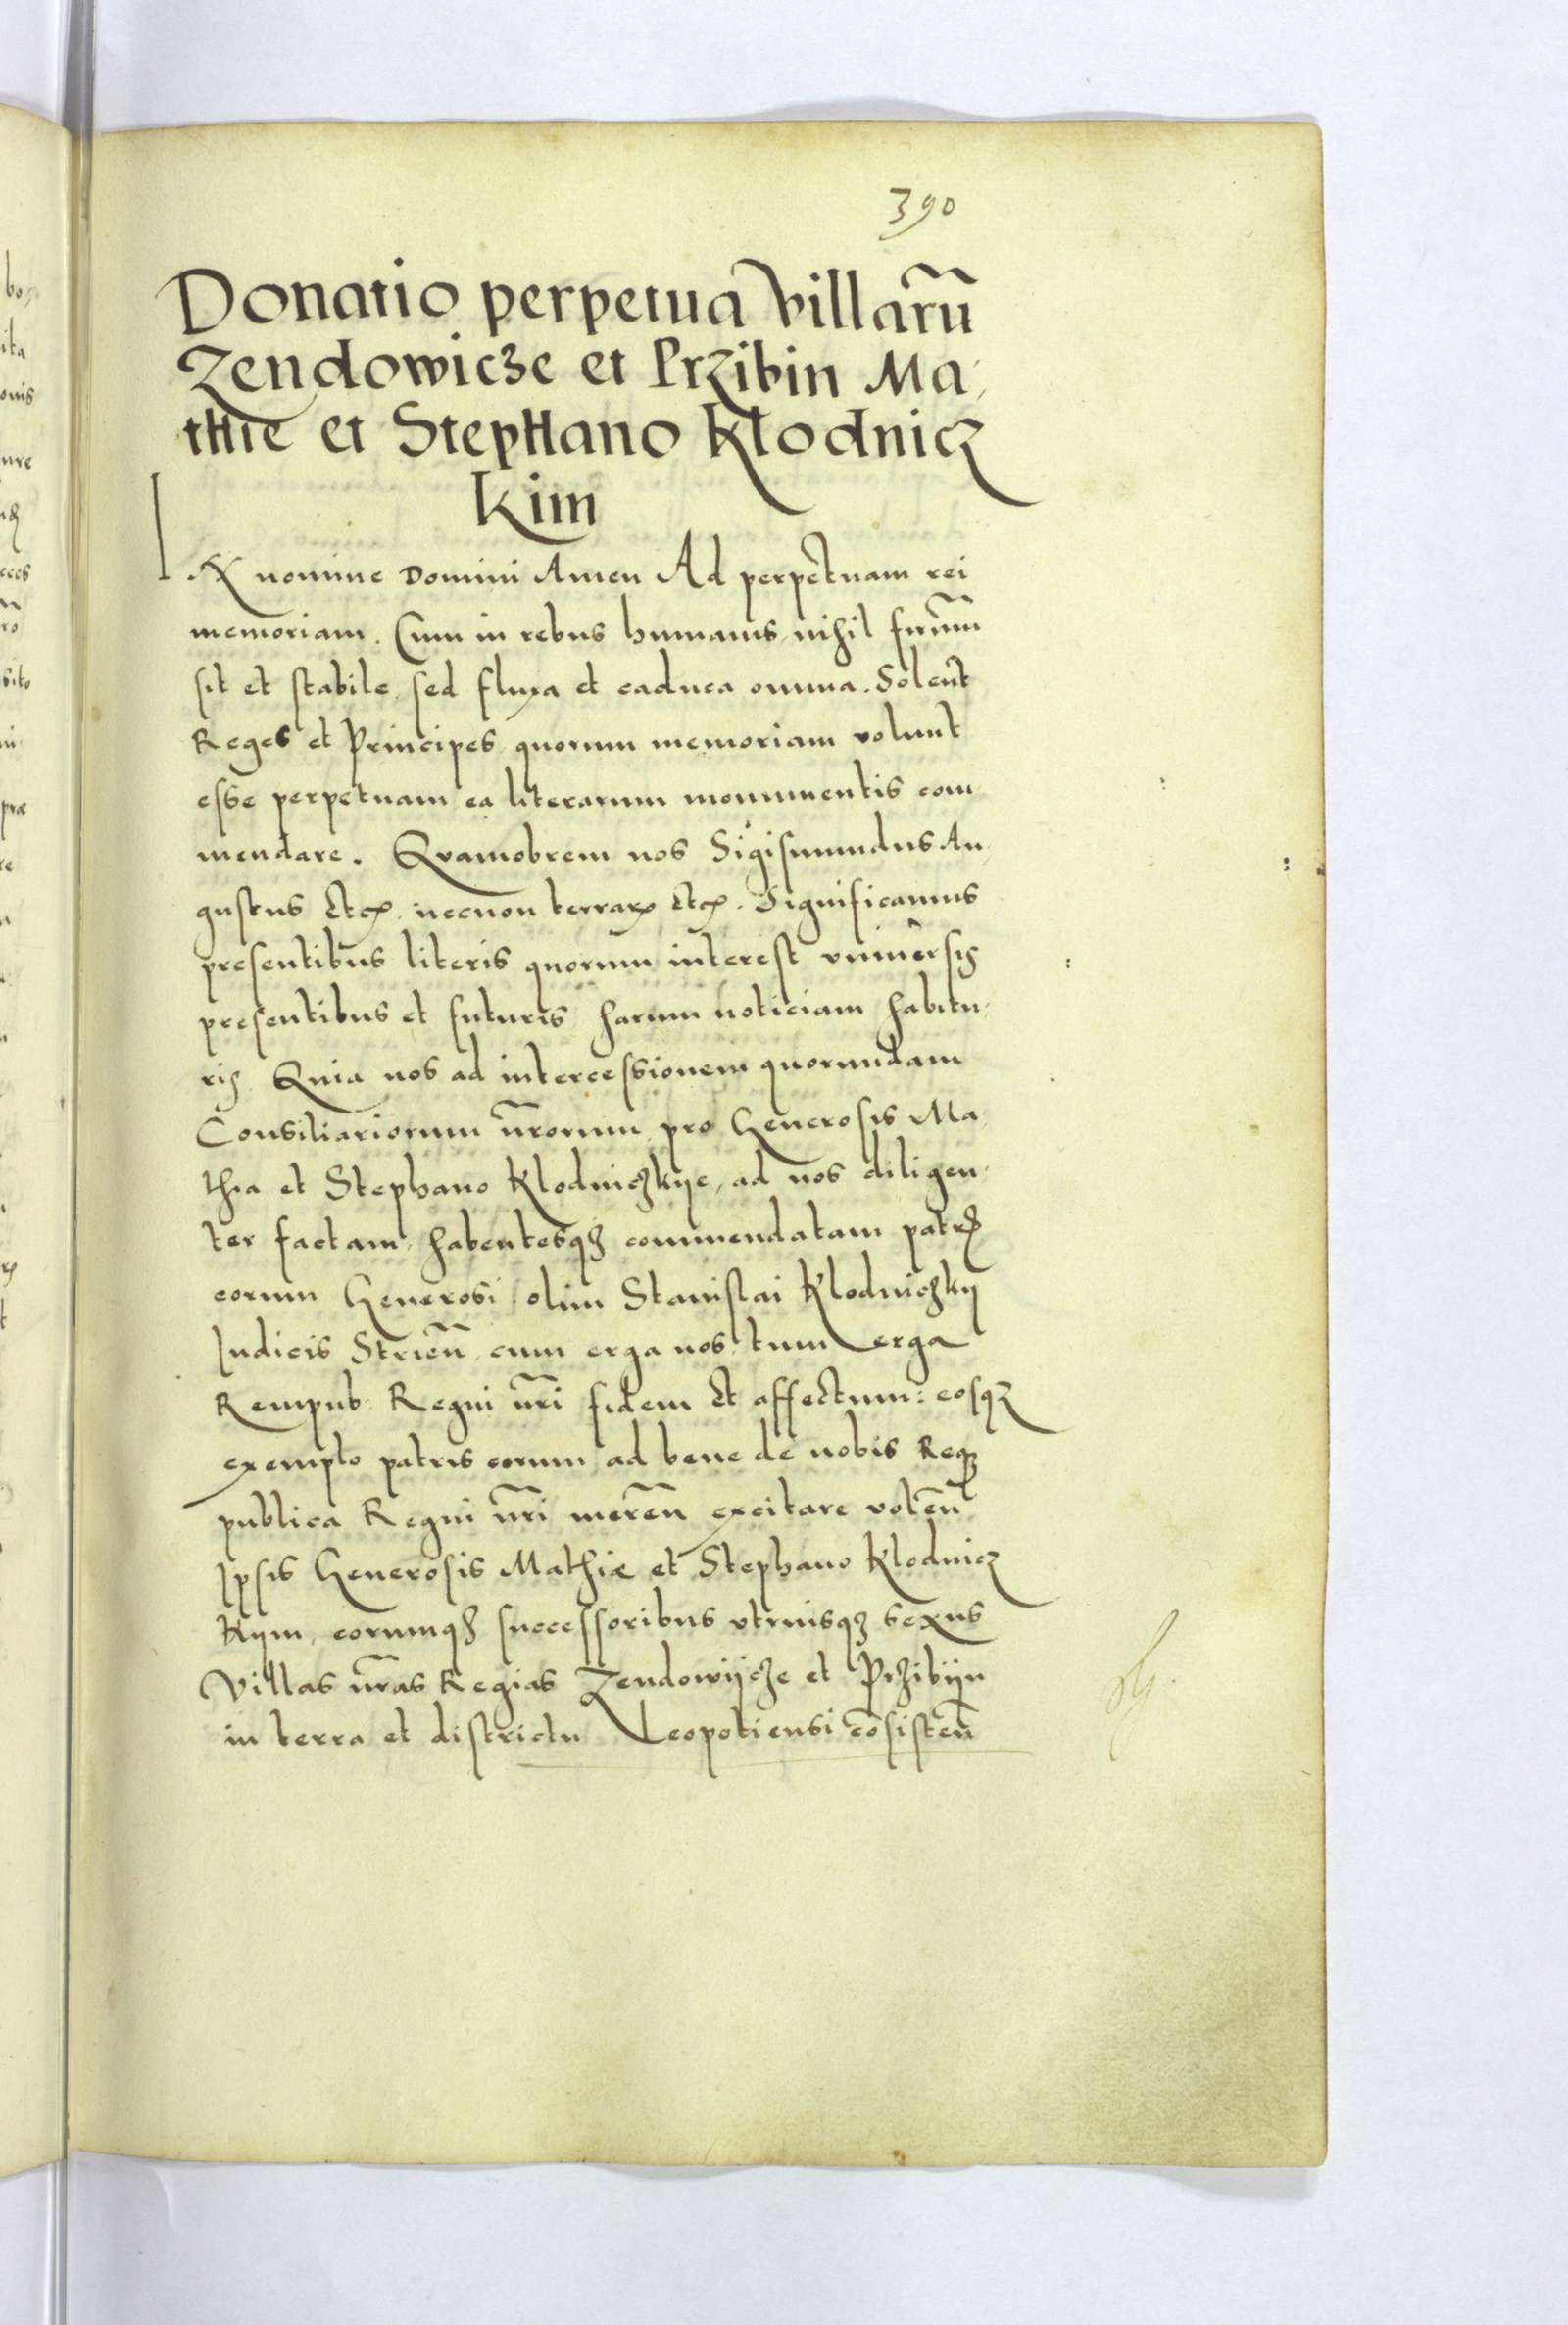 390
Donatio perpetua villarū
Zendowicze et Przibin Ma,
thie et Stephano Klodnicz
kim
IN nomine Domini Amen Ad perpetuam rei
memoriam. Cum in rebus humanis nihil firmū
sit et stabile sed fluxa et caduca omnia. Solent
Reges et Principes quorum memoriam volunt
esse perpetuam ea literarum monumentis com
mendare. Quamobrem nos Sigismundus Au,
gustus Etcꝫ. necnon terrarꝫ Etcꝫ. Significamus
presentibus literis quorum interest vniuersis
presentibus et futuris harum noticiam habitu,
ris Quia nos ad intercessionem quorundam
Consiliariorum nr̃orum pro Generosis Ma,
thia et Stephano Klodniczkije, ad nos diligen,
ter factam, habentesqꝫ commendatam patris
eorum Generosi olim Stanislai Klodniczkij
Iudicis Strieñ cum erga nos tum erga
Rempub Regni nr̃i fidem et affectum: eosqꝫ
exemplo patris eorum ad bene de nobis Reqꝫ
publica Regni nr̃i mereñ excitare voleñ
Ipsis Generosis Mathiæ et Stephano Klodnicz
kijm, eorumqꝫ successoribus vtriusqꝫ sexus
Villas nr̃as Regias Zendowijcze et Przibijn
in terra et districtu Leopoliensi cōsisteñ